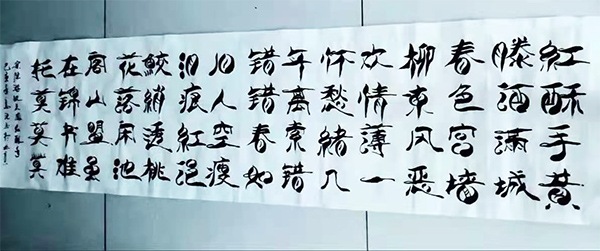 紅酥手黃
滕酒滿城
春色宫墙
柳東风恶
欢情薄一
怀愁緒几
年离索错
错错春如
旧人空瘦
泪痕紅浥
鮫綃透桃
花落闲池
阁山盟虽
在錦书难
托莫莫莫